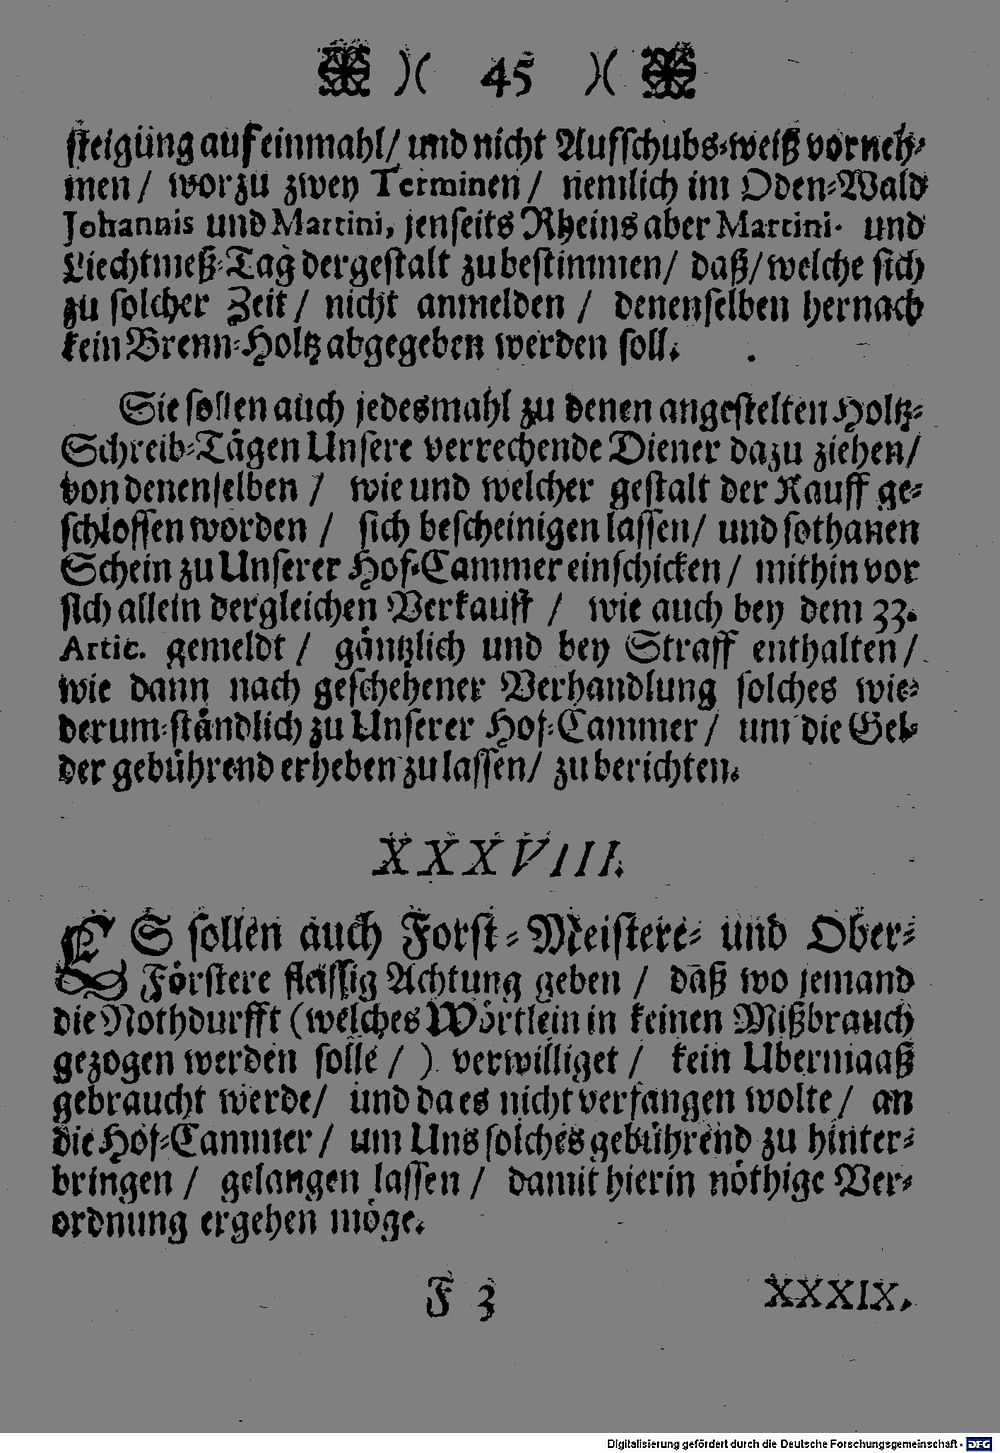 )( 45 )(
ſteigung auf einmahl/ und nicht Auffſchubs-weiß vorneh-
men / worzu zwey Terminen / nemlich im Oden-Wald
Johannis und Martini, jenſeits Rheins aber Martini und
Liechtmeß-Tag dergeſtalt zu beſtimmen/ daß/ welche ſich
zu ſolcher Zeit / nicht anmelden / denenſelben hernach
kein Brenn-Holtz abgegeben werden ſoll.
Sie ſollen auch jedesmahl zu denen angeſtelten Holtz-
Schreib-Tägen Unſere verrechende Diener dazu ziehen/
von denenſelben / wie und welcher geſtalt der Kauff ge-
ſchloſſen worden / ſich beſcheinigen laſſen/ und ſothanen
Schein zu Unſerer Hof-Cammer einſchicken / mithin vor
ſich allein dergleichen Verkauff / wie auch bey dem 33.
Artic. gemeldt / gäntzlich und bey Straff enthalten /
wie dann nach geſchehener Verhandlung ſolches wie-
derum-ſtändlich zu Unſerer Hof-Cammer / um die Gel-
der gebührend erheben zu laſſen/ zu berichten.
XXXVIII.
ES ſollen auch Forſt-Meiſtere- und Ober-
Förſtere fleiſſig Achtung geben / daß wo jemand
die Nothdurfft (welches Wörtlein in keinen Mißbrauch
gezogen werden ſolle / ) verwilliget / kein Ubermaaß
gebraucht werde/ und da es nicht verfangen wolte / an
die Hof-Cammer / um Uns ſolches gebührend zu hinter-
bringen / gelangen laſſen / damit hierin nöthige Ver-
ordnung ergehen möge.
F 3 XXXIX.
Digitalisierung gefördert durch die Deutsche Forschungsgemeinschaft - DFG